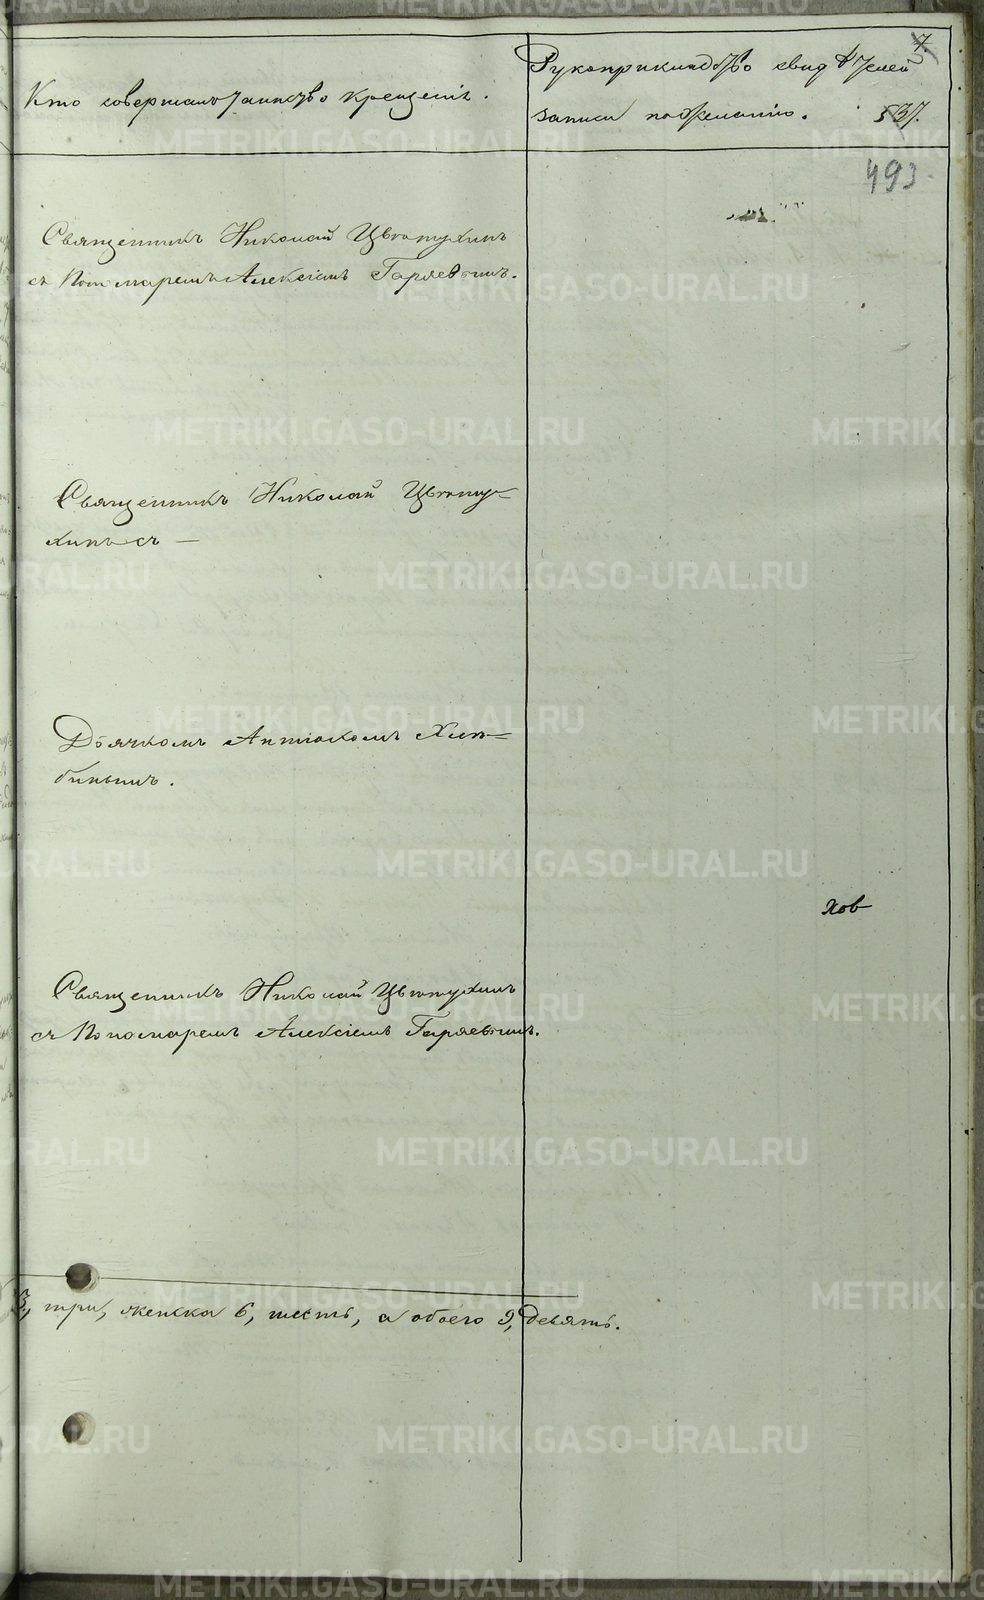 7.
Кто совершалъ таинство крещенія.
Рукоприкладство свидѣтелей
записи по желанію.
537.
493.
Священникъ Николай Цвѣтухинъ
съ Пономаремъ Алексіемъ Гаряевымъ.
Священникъ Николай Цвѣту-
хинъ съ —
Дьячкомъ Антіохомъ Хлѣ-
бинымъ.
хов
Священникъ Николай Цвѣтухинъ
съ Пономаремъ Алексіемъ Гаряевымъ.
3, три, женска 6, шесть, а обоего 9, девять.
METRIKI.GASO-URAL.RU